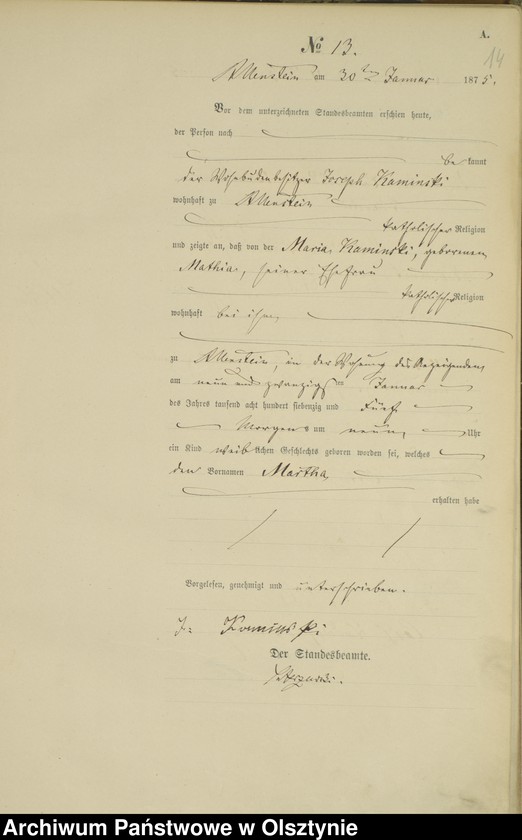 A.
14
No 13.
Allenstein am 30ten Januar 1875.
Vor dem unterzeichneten Standesbeamten erschien heute,
der Person nach
be kannt
der Joseph Kaminski
wohnhaft zu Allenstein
katholischer Religion
und zeigte an, daß von der Maria Kaminski, geborenen
Mathia, seiner Ehefrau
katholischer Religion
wohnhaft bei ihm,
zu Allenstein, in der Wohnung des Anzeigenden,
am neun und zwanzigsten Januar
des Jahres tausend acht hundert siebenzig und Fünf
Morgens um neun Uhr
ein Kind weib lichen Geschlechts geboren worden sei, welches
den Vornamen Martha,
erhalten habe
Vorgelesen, genehmigt und unterschrieben.
J. Kaminski
Der Standesbeamte.
Archiwum Państwowe w Olsztynie